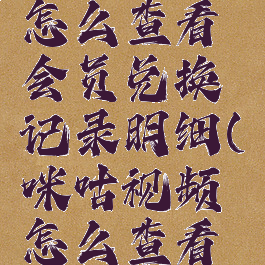 怎么查看
会员兑换
记录明细(
咪咕视频
怎么查看